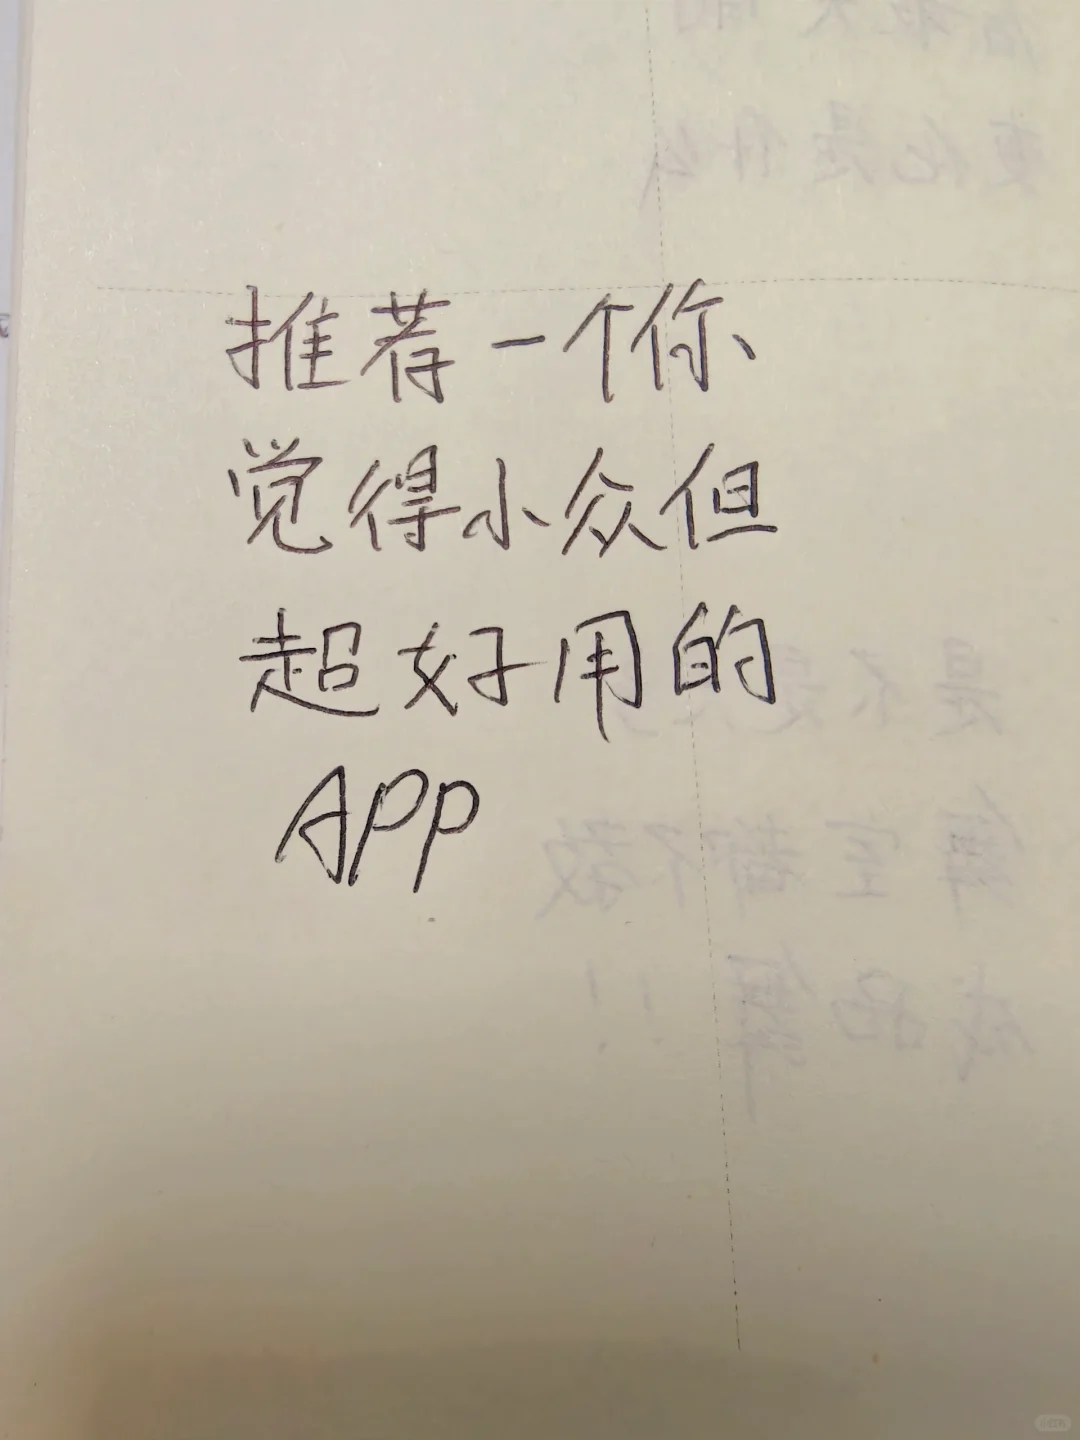 推荐一个你
觉得小众但
超好用的
APP